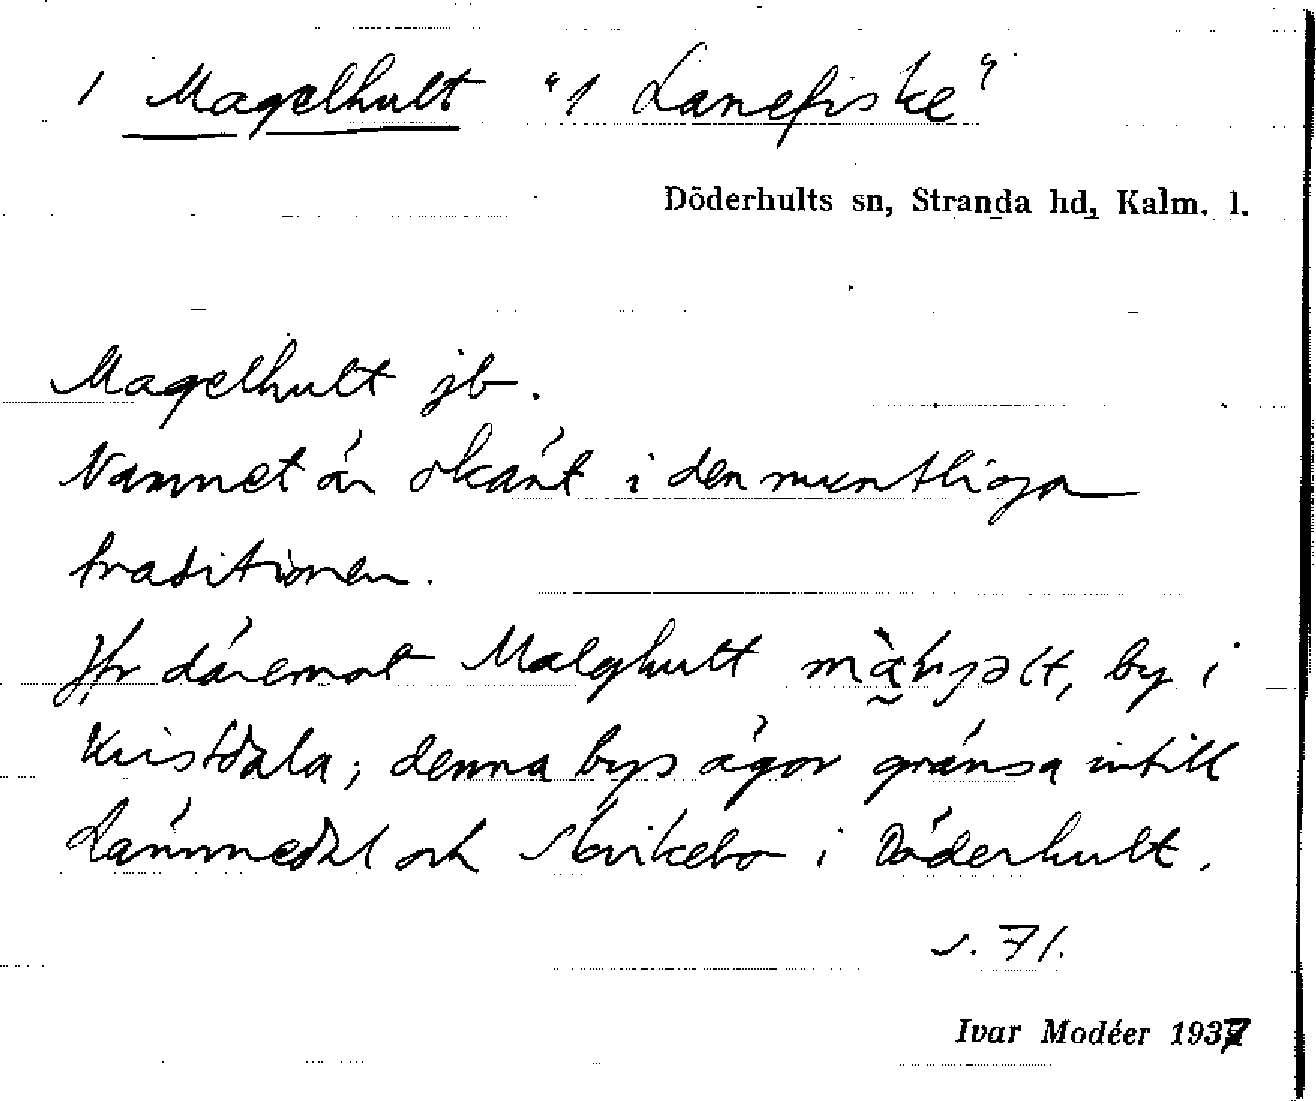 1 Magelhult "1 Lanefiske"
Döderhults sn, Stranda hd, Kalm. l.
Magelhult jb.
Namnet är okänt i den muntliga
traditionen.
Jfr däremot Malghult by i
Kristdala; denna bys ägor gränsa intill
och Skrikebo i Döderhult.
s. 71.
Ivar Modéer 1937